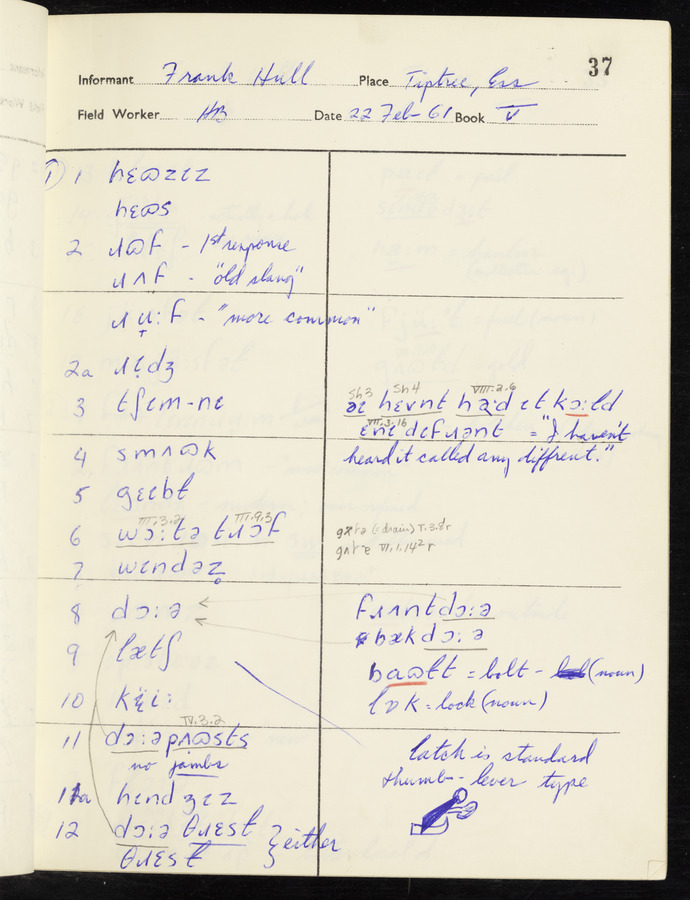 37
Informant Frank Hull Place Tiptree, Ess
Field Worker HB Date 22 Feb-61 Book V
I) 1 hɛɷzɪz
hɛɷs
2 ɹɷf - 1st response
ɹʌf - "old slang"
ɹu̟:f - "more common"
2a ɹɪdʒ
3 tʃɪm-nɪ
4 smʌɷk
5 gɛɪbɫ
6 wɔ:tə tɹɔf
III.3.2 III.9.3
7 wɪndəz̥
8 dɔ:ə
9 lætʃ
10 kɪ̈i:
11 dɔ:əpʌɷsts
IV.3.2
no jambs
11a hɪndʒɪz
12 dɔ:ə θɹɛsɫ } either
θɹɛsɫ
Sh3 Sh4 VIII.2.6
æɪ hɛvnt hə:d ɪt kɔ:ld
VII.3.16
ɛnɪ dɪfɹənt = "I haven't
heard it called any diffrent."
gʌtə (=drain) I.3.8r
gʌtə VI.1.14² r
fɹʌntdɔ:ə
bækdɔ:ə
baɷɫt = bolt - (noun)
lɒk = lock (noun)
latch is standard
thumb-lever type